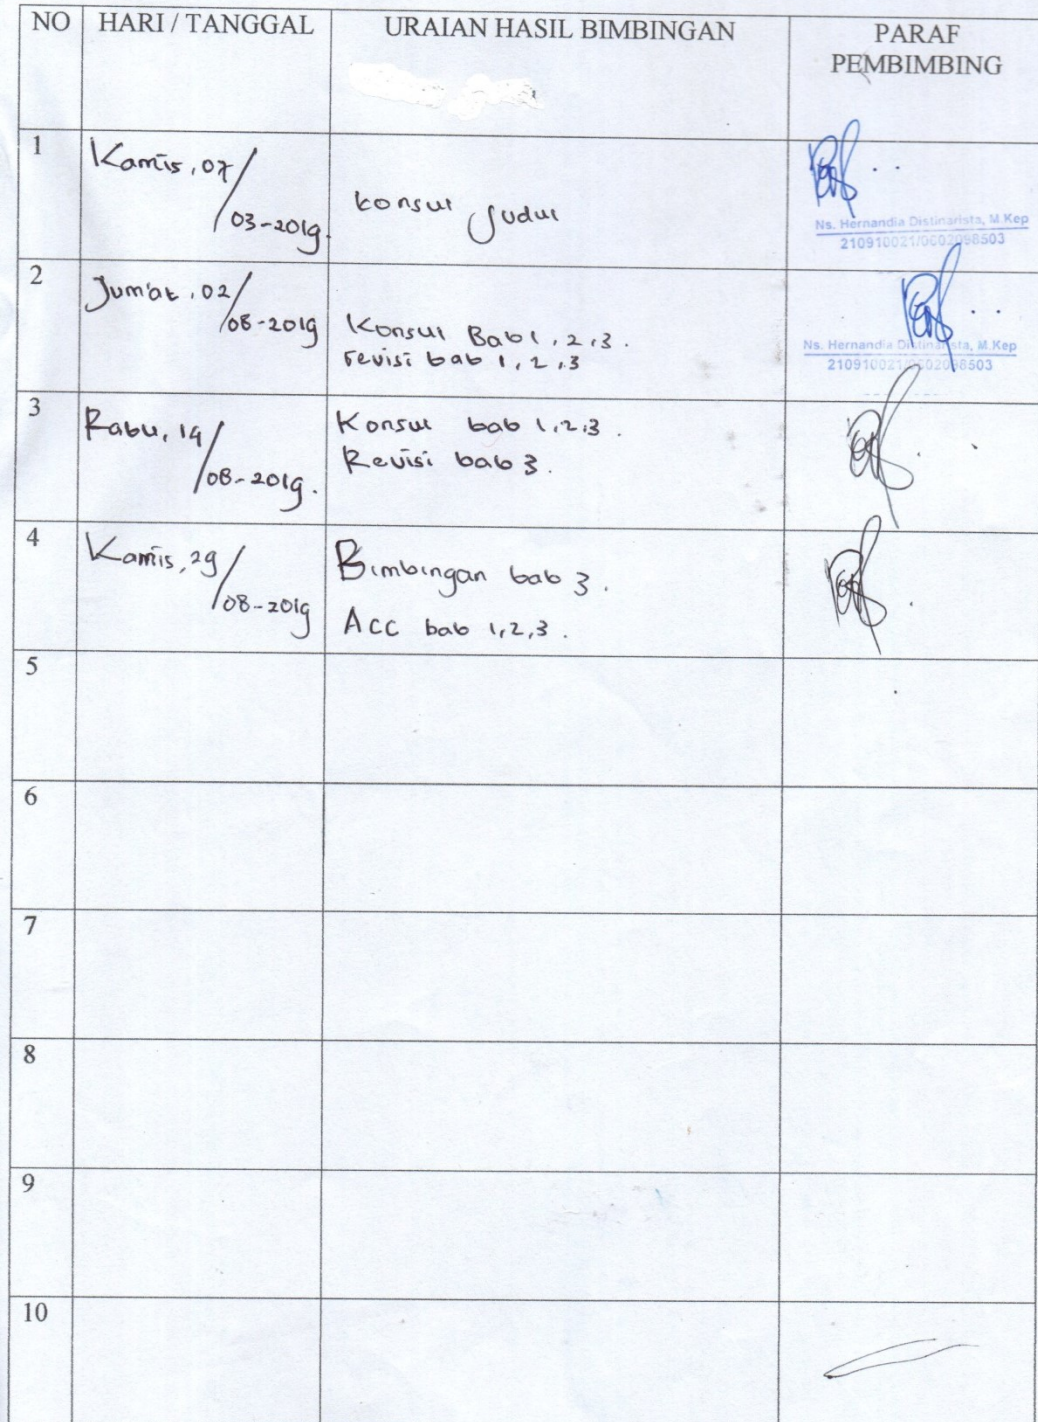 NO HARI / TANGGAL URAIAN HASIL BIMBINGAN PARAF
PEMBIMBING
1 Kamis, 07/
03-2019. konsul Judul
Ns. Hernandia Distinarista, M.Kep
210910021/0602098503
2 Jum'at, 02/
08-2019 Konsul Bab 1, 2, 3.
revisi bab 1, 2, 3
Ns. Hernandia Distinarista, M.Kep
3 Rabu, 14/ Konsul bab 1,2,3.
08-2019. Revisi bab 3.
4 Kamis, 29/ Bimbingan bab 3.
08-2019 ACC bab 1,2,3.
5
6
7
8
9
10